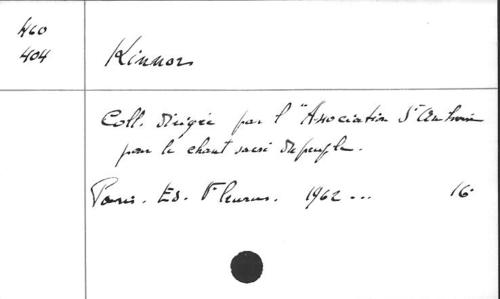 460
404
Kinnor
Coll. dirigée par l'"Association St Ambroise
pour le chant sacré du peuple.
Paris. Ed. Fleurus. 1962 ... 16°